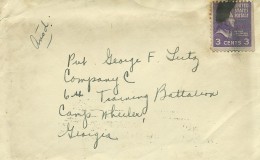 Pvt. George F. Lutz
Company C
64 Training Battalion
Camp Wheeler
Georgia
UNITED STATES
POSTAGE
3 CENTS 3